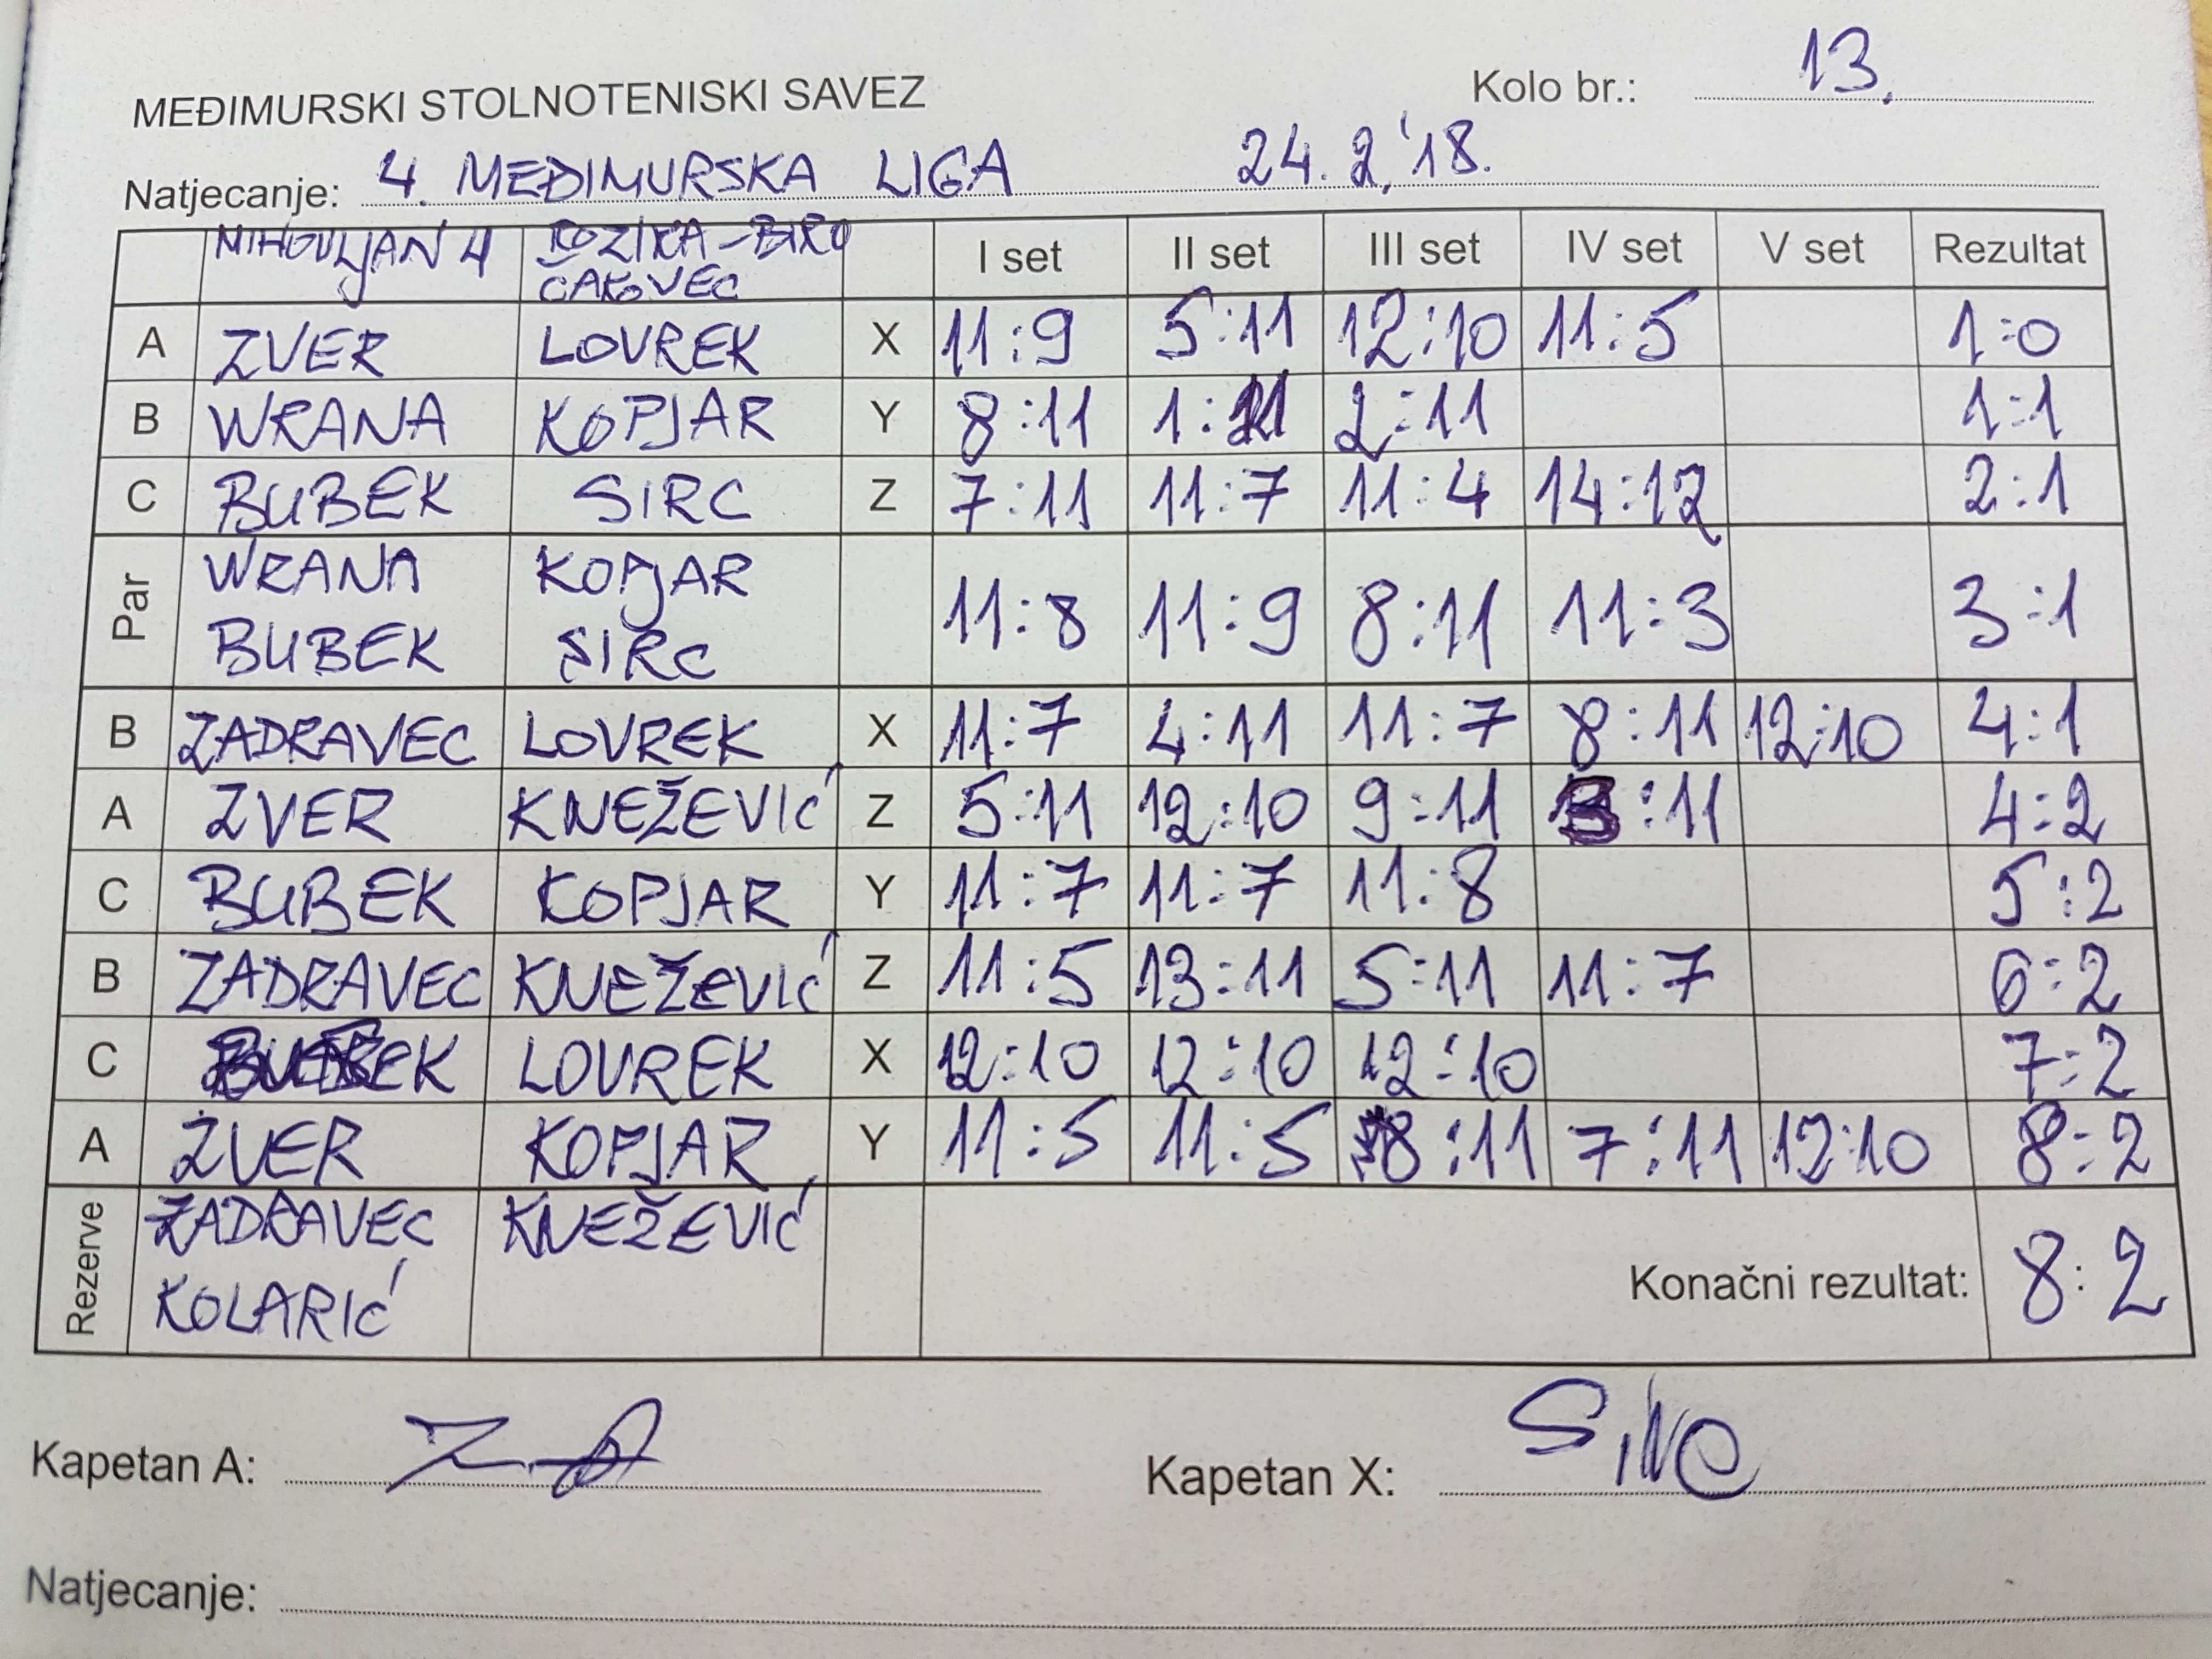 MEĐIMURSKI STOLNOTENISKI SAVEZ Kolo br.: 13.
Natjecanje: 4. MEĐIMURSKA LIGA 24. 2. '18.
MIHOVLJAN 4 KOZIKA-BIRO I set II set III set IV set V set Rezultat
ČAKOVEC
A ZVER LOVREK X 11:9 5:11 12:10 11:5 1:0
B WRANA KOPJAR Y 8:11 1:11 2:11 1:1
C BUBEK SIRC Z 7:11 11:7 11:4 14:12 2:1
Par WRANA KOPJAR 11:8 11:9 8:11 11:3 3:1
BUBEK SIRC
B ZADRAVEC LOVREK X 11:7 4:11 11:7 8:11 12:10 4:1
A ZVER KNEŽEVIĆ Z 5:11 12:10 9:11 3:11 4:2
C BUBEK KOPJAR Y 11:7 11:7 11:8 5:2
B ZADRAVEC KNEŽEVIĆ Z 11:5 13:11 5:11 11:7 6:2
C BUBEK LOVREK X 12:10 12:10 12:10 7:2
A ZVER KOPJAR Y 11:5 11:5 8:11 7:11 12:10 8:2
Rezerve ZADRAVEC KNEŽEVIĆ
KOLARIĆ Konačni rezultat: 8:2
Kapetan A: Kapetan X: Sirc
Natjecanje: